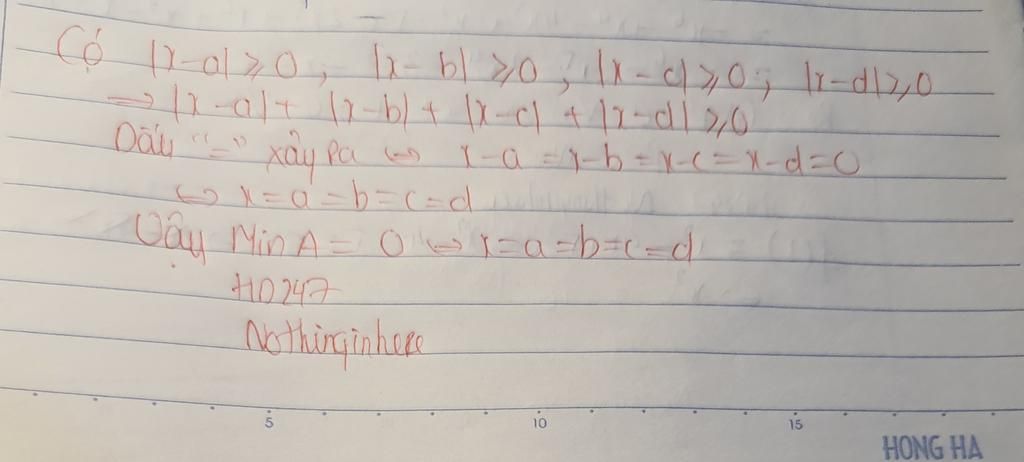 Có |x-a| ≥ 0; |x-b| ≥ 0; |x-c| ≥ 0; |x-d| ≥ 0
⇒ |x-a| + |x-b| + |x-c| + |x-d| ≥ 0
Dấu "=" xảy ra ⇔ x-a = x-b = x-c = x-d = 0
⇔ x = a = b = c = d
Vậy Min A = 0 ⇔ x = a = b = c = d
HD247
Nothinginhere
5 10 15
HONG HA